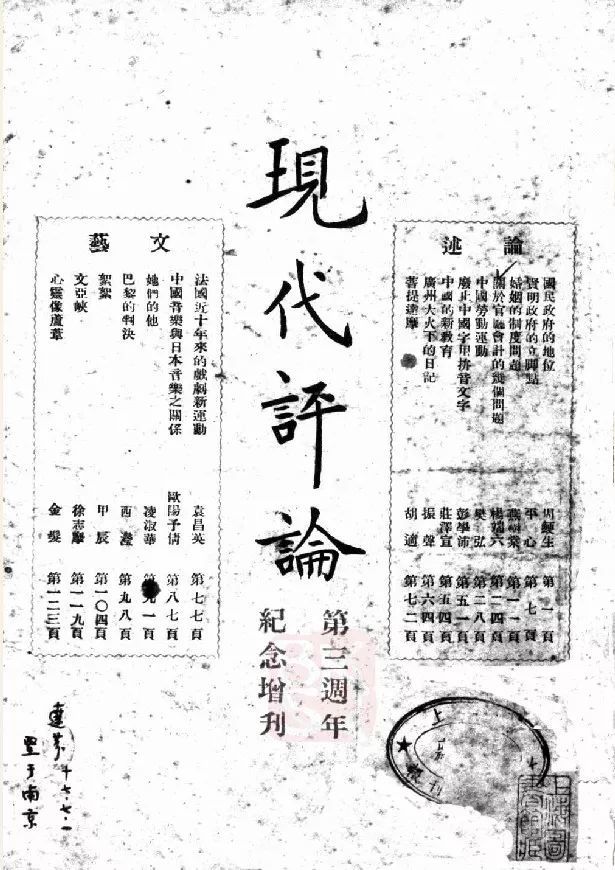 現代評論
第三週年
紀念增刊
論述
國民政府的地位 周鯁生 第一頁
賢明政府的立脚點 平心 第七頁
婚姻的制度問題 第一一頁
關於官廳會計的幾個問題 楊端六 第二四頁
中國勞動運動 樊弘 第二八頁
廢止中國字用拼音文字 彭學沛 第五一頁
中國的新教育 莊澤宣 第五四頁
廣州大火下的日記 振聲 第六四頁
菩提達摩 胡適 第七二頁
文藝
法國近十年來的戲劇新運動 袁昌英 第七七頁
中國音樂與日本音樂之關係 歐陽予倩 第八七頁
她們的他 凌淑華 第九一頁
巴黎的判決 西瀅 第九八頁
絮絮 甲辰 第一〇四頁
文亞峽 徐志摩 第一一九頁
心靈像蘆葦 金髮 第一二三頁
十七、七、一
于南京